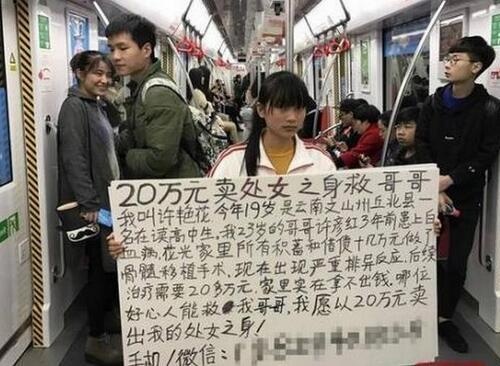 20万元卖处女之身救哥哥
我叫许艳花今年19岁是云南文山州丘北县一
名在读高中生,我23岁的哥哥许彦红3年前患上白
血病,花光家里所有积蓄和借债十几万元做了
骨髓移植手术,现在出现严重排异反应,后续
治疗需要20多万元,家里实在拿不出钱,哪位
好心人能救我哥哥,我愿以20万元卖
出我的处女之身!
手机/微信: